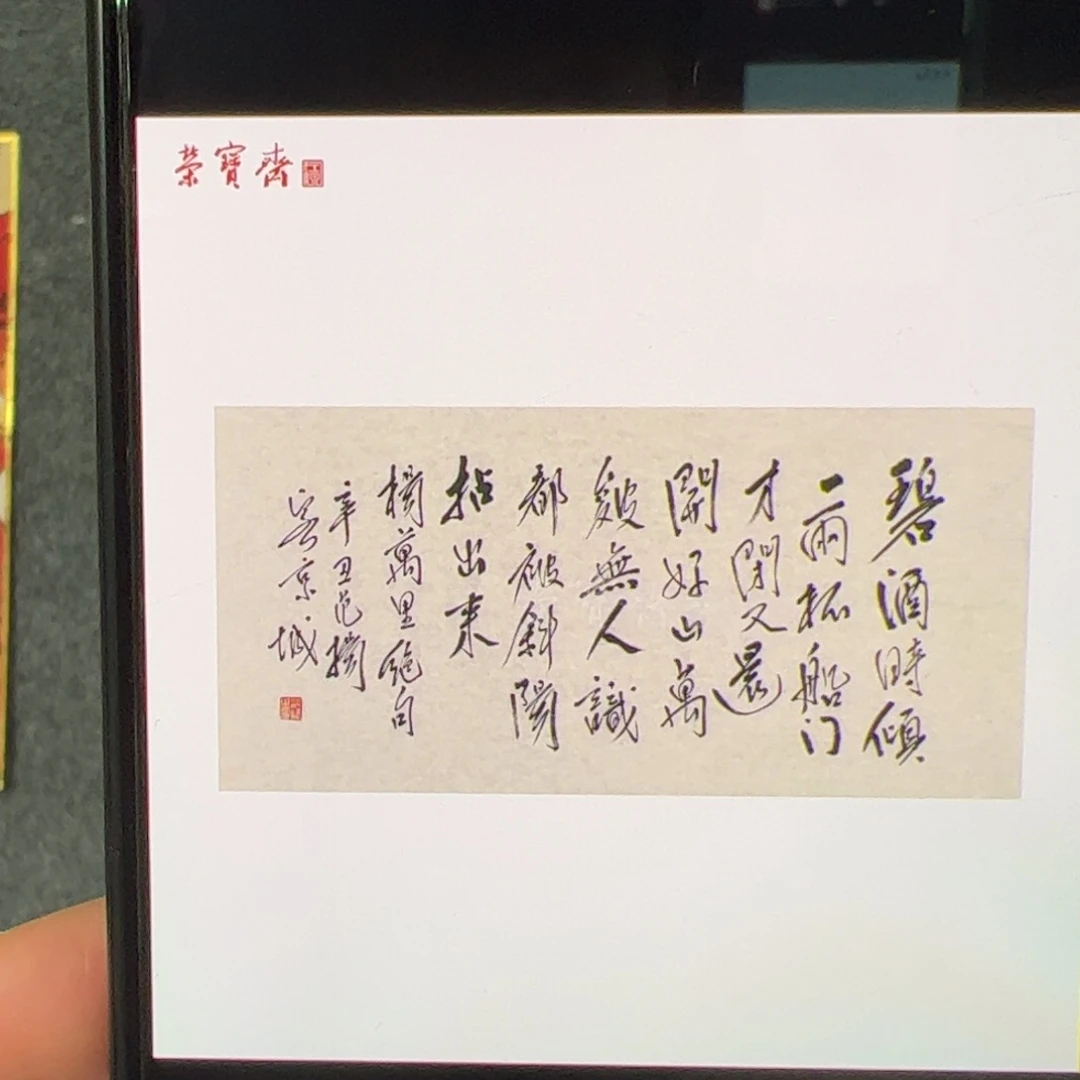 榮寶齋
碧酒時傾
一兩杯船门
才閉又還
開好山萬
皴無人識
都被斜陽
拈出来
楊萬里絶句
辛丑范
客京城